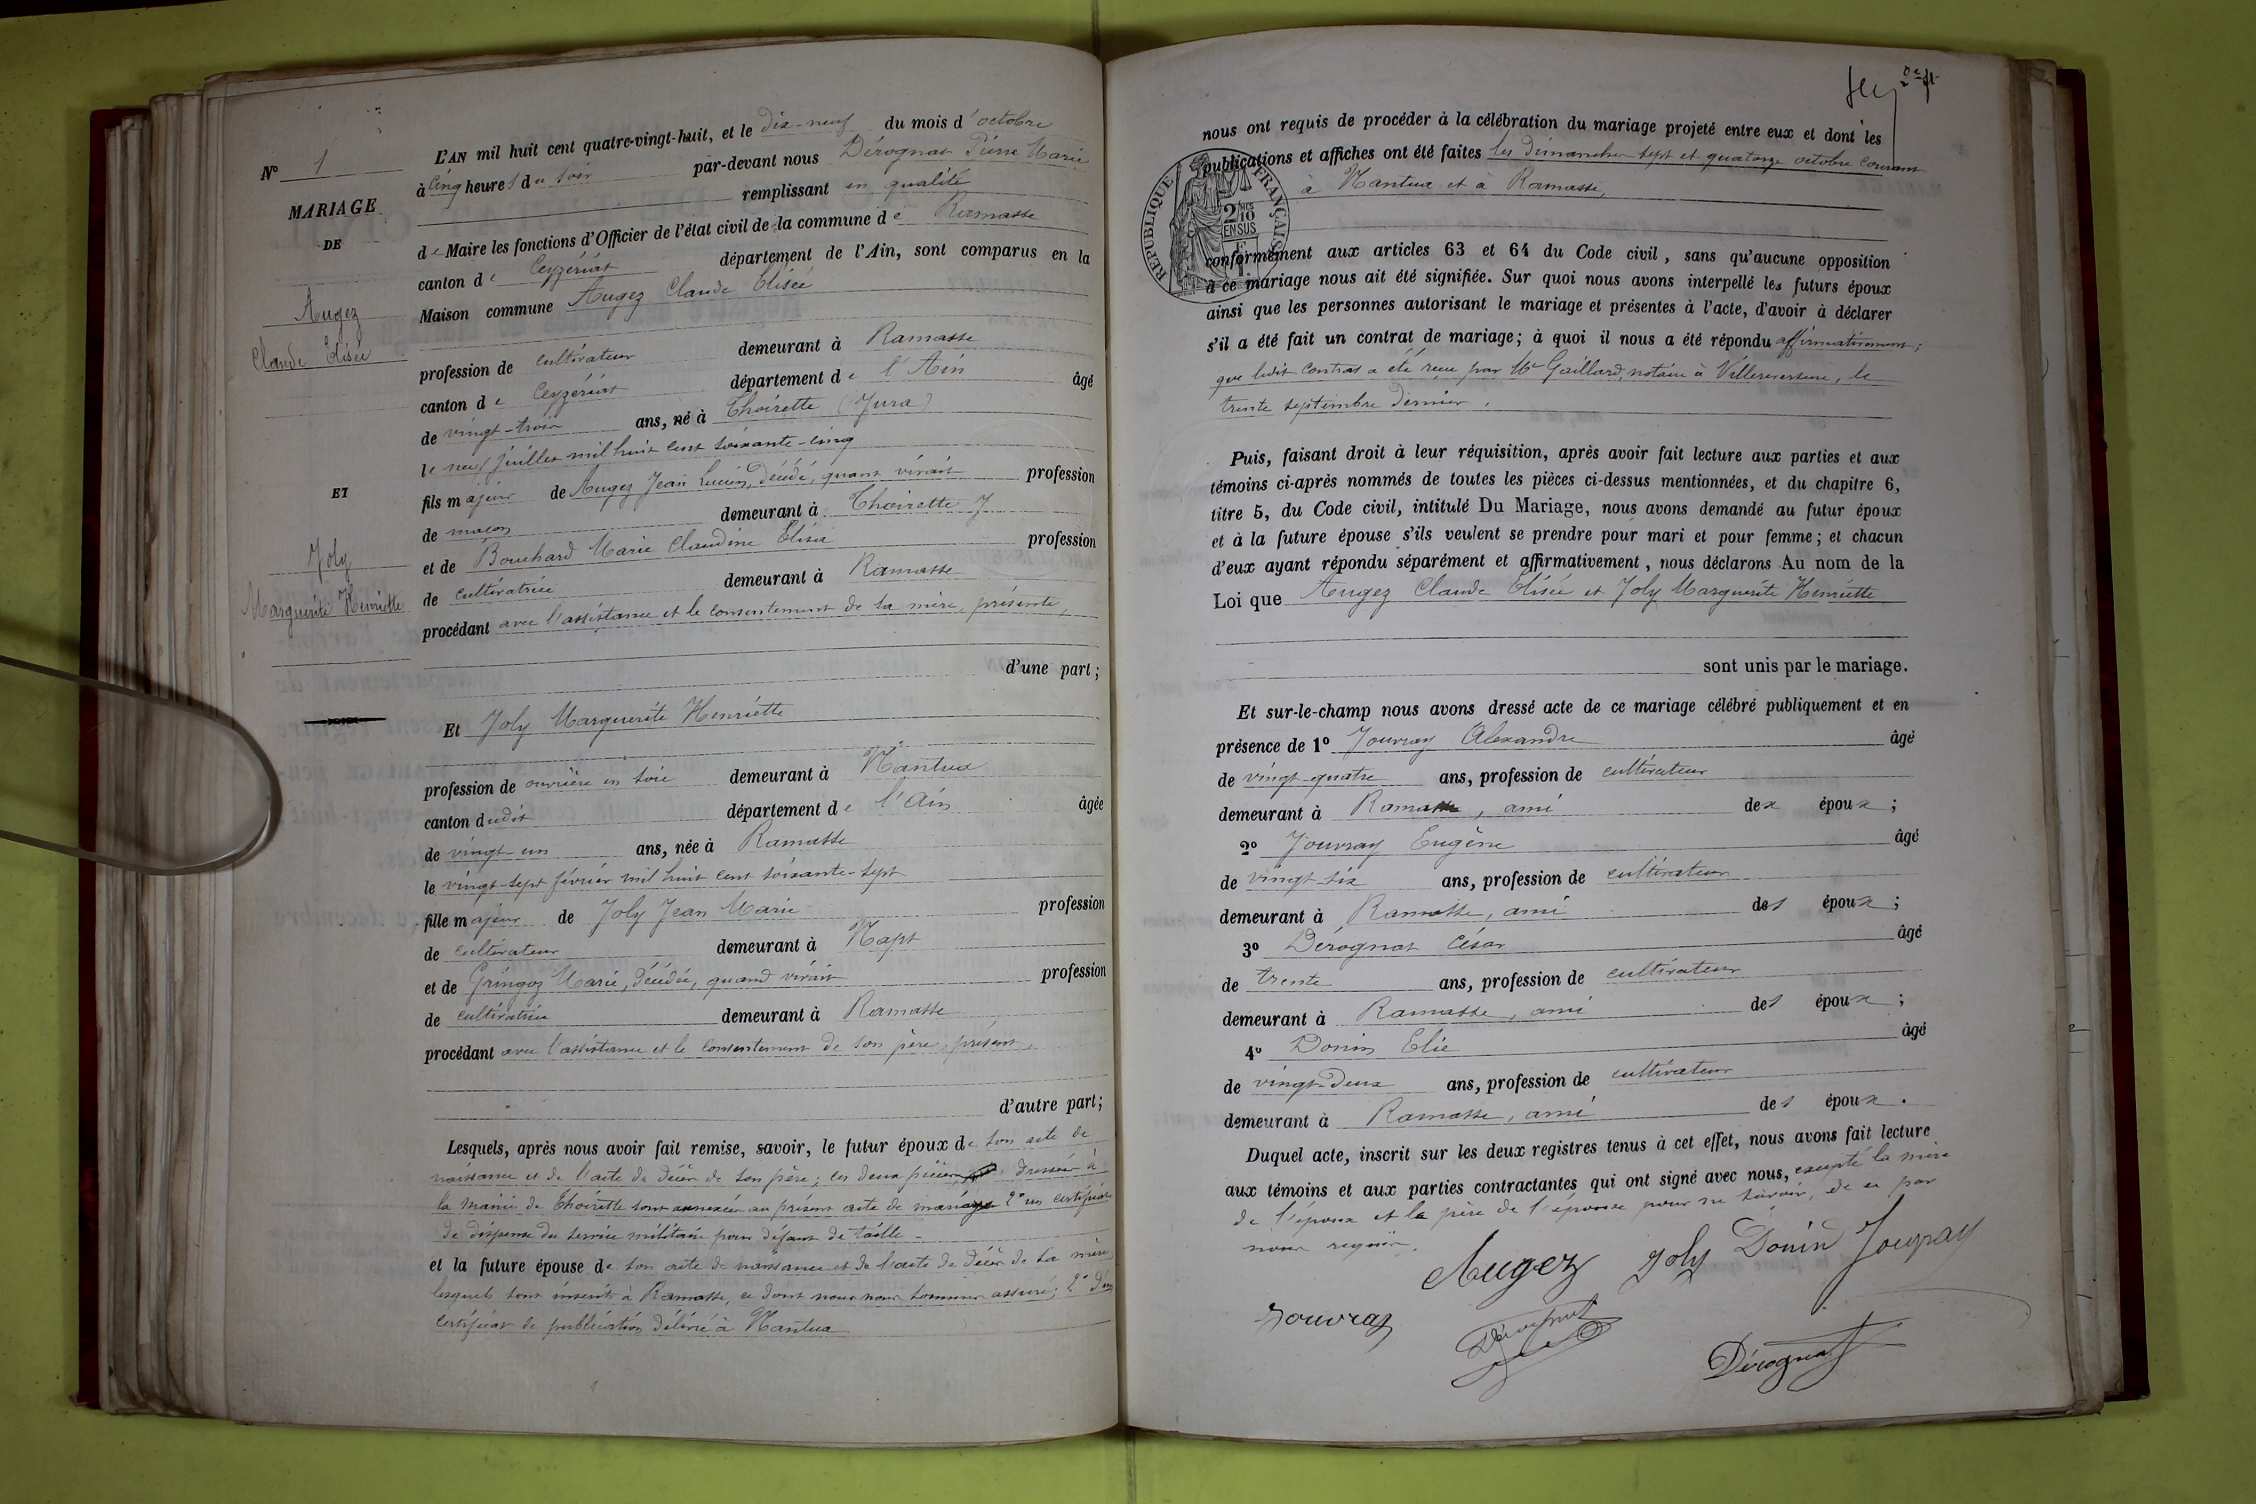 N° 1
MARIAGE
DE
Augez
Claude Elisée
ET
Joly
Marguerite Henriette
L'AN mil huit cent quatre-vingt-huit, et le dix-neuf du mois d'octobre
à cinq heures du soir par-devant nous Dérognat Pierre Marie
remplissant en qualité
de Maire les fonctions d'Officier de l'état civil de la commune de Ramasse
canton de Ceyzériat département de l'Ain, sont comparus en la
Maison commune Augez Claude Elisée
profession de cultivateur demeurant à Ramasse
canton de Ceyzériat département de l'Ain âgé
de vingt-trois ans, né à Thoirette (Jura)
le neuf juillet mil huit cent soixante-cinq
fils majeur de Augez Jean Lucien, décédé, quand vivait profession
de maçon demeurant à Thoirette J
et de Bouchard Marie Claudine Elisa profession
de cultivatrice demeurant à Ramasse
procédant avec l'assistance et le consentement de sa mère, présente,
d'une part;
Et Joly Marguerite Henriette
profession de ouvrière en soie demeurant à Nantua
canton dudit département de l'Ain âgée
de vingt un ans, née à Ramasse
le vingt-sept février mil huit cent soixante-sept
fille majeur de Joly Jean Marie profession
de cultivateur demeurant à Napt
et de Gringoz Marie, décédée, quand vivait profession
de cultivatrice demeurant à Ramasse
procédant avec l'assistance et le consentement de son père, présent,
d'autre part;
Lesquels, après nous avoir fait remise, savoir, le futur époux de son acte de
naissance et de l'acte de décès de son père; ces deux pièces dressées à
la mairie de Thoirette sont annexées au présent acte de mariage 2° un certificat
de dispense du service militaire pour défaut de taille
et la future épouse de son acte de naissance et de l'acte de décès de sa mère
lesquels sont inscrits à Ramasse, ce dont nous nous sommes assuré; 2° d'un
certificat de publication délivré à Nantua
nous ont requis de procéder à la célébration du mariage projeté entre eux et dont les
publications et affiches ont été faites les dimanches sept et quatorze octobre courant
à Nantua et à Ramasse,
RÉPUBLIQUE FRANÇAISE
2/10
EN SUS
conformément aux articles 63 et 64 du Code civil, sans qu'aucune opposition
à ce mariage nous ait été signifiée. Sur quoi nous avons interpellé les futurs époux
ainsi que les personnes autorisant le mariage et présentes à l'acte, d'avoir à déclarer
s'il a été fait un contrat de mariage; à quoi il nous a été répondu affirmativement;
que ledit contrat a été reçu par Me Gaillard, notaire à Villereversure, le
trente septembre dernier.
Puis, faisant droit à leur réquisition, après avoir fait lecture aux parties et aux
témoins ci-après nommés de toutes les pièces ci-dessus mentionnées, et du chapitre 6,
titre 5, du Code civil, intitulé Du Mariage, nous avons demandé au futur époux
et à la future épouse s'ils veulent se prendre pour mari et pour femme; et chacun
d'eux ayant répondu séparément et affirmativement, nous déclarons Au nom de la
Loi que Augez Claude Elisée et Joly Marguerite Henriette
sont unis par le mariage.
Et sur-le-champ nous avons dressé acte de ce mariage célébré publiquement et en
présence de 1° Jouvray Alexandre âgé
de vingt-quatre ans, profession de cultivateur
demeurant à Ramasse, ami des époux;
2° Jouvray Eugène âgé
de vingt-six ans, profession de cultivateur
demeurant à Ramasse, ami des époux;
3° Dérognat César âgé
de trente ans, profession de cultivateur
demeurant à Ramasse, ami des époux;
4° Donin Elie âgé
de vingt-deux ans, profession de cultivateur
demeurant à Ramasse, ami des époux.
Duquel acte, inscrit sur les deux registres tenus à cet effet, nous avons fait lecture
aux témoins et aux parties contractantes qui ont signé avec nous, excepté la mère
de l'époux et le père de l'épouse pour ne savoir, de ce par
nous requis.
Augez Joly Donin Jouvray
Jouvray Dérognat Dérognat